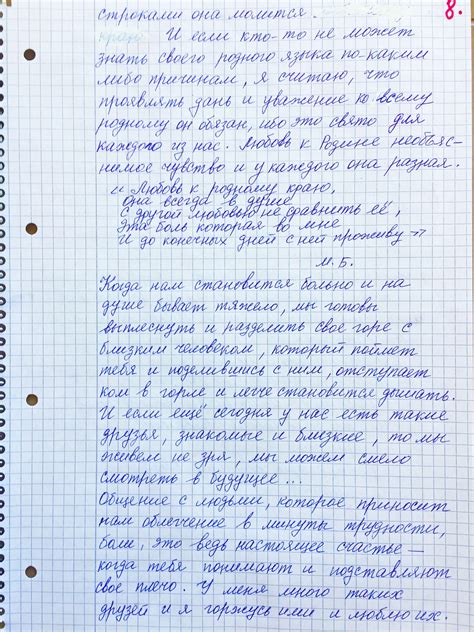 строками она молится.
8.
И если кто-то не может
знать своего родного языка по-каким
либо причинам, я считаю, что
проявлять дань и уважение ко всему
родному он обязан, ибо это свято для
каждого из нас. Любовь к Родине необъяс-
нимое чувство и у каждого она разная.
"Любовь к родному краю,
Она всегда в душе
С другой любовью не сравнить её,
Эта боль которая во мне
И до конечных дней с ней проживу"
М. Б.
Когда нам становится больно и на
душе бывает тяжело, мы готовы
выплеснуть и разделить свое горе с
близким человеком, который поймет
тебя и поделившись с ним, отступает
ком в горле и легче становится дышать.
И если ещё сегодня у нас есть такие
друзья, знакомые и близкие, то мы
живем не зря, мы можем смело
смотреть в будущее...
Общение с людьми, которое приносит
нам облегчение в минуты трудности,
боли, это ведь настоящее счастье —
когда тебя понимают и подставляют
свое плечо. У меня много таких
друзей и я горжусь ими и люблю их.